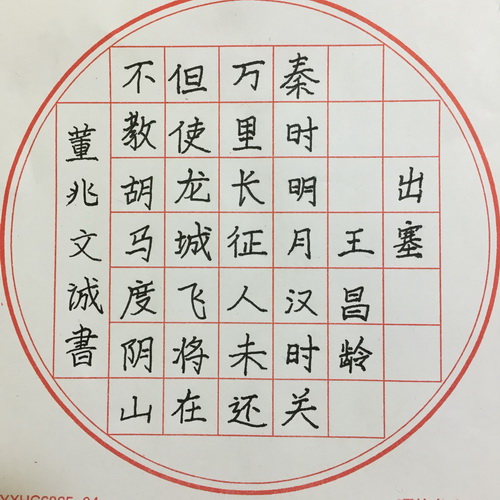 出塞
王昌龄
秦时明月汉时关
万里长征人未还
但使龙城飞将在
不教胡马度阴山
董兆文诚書